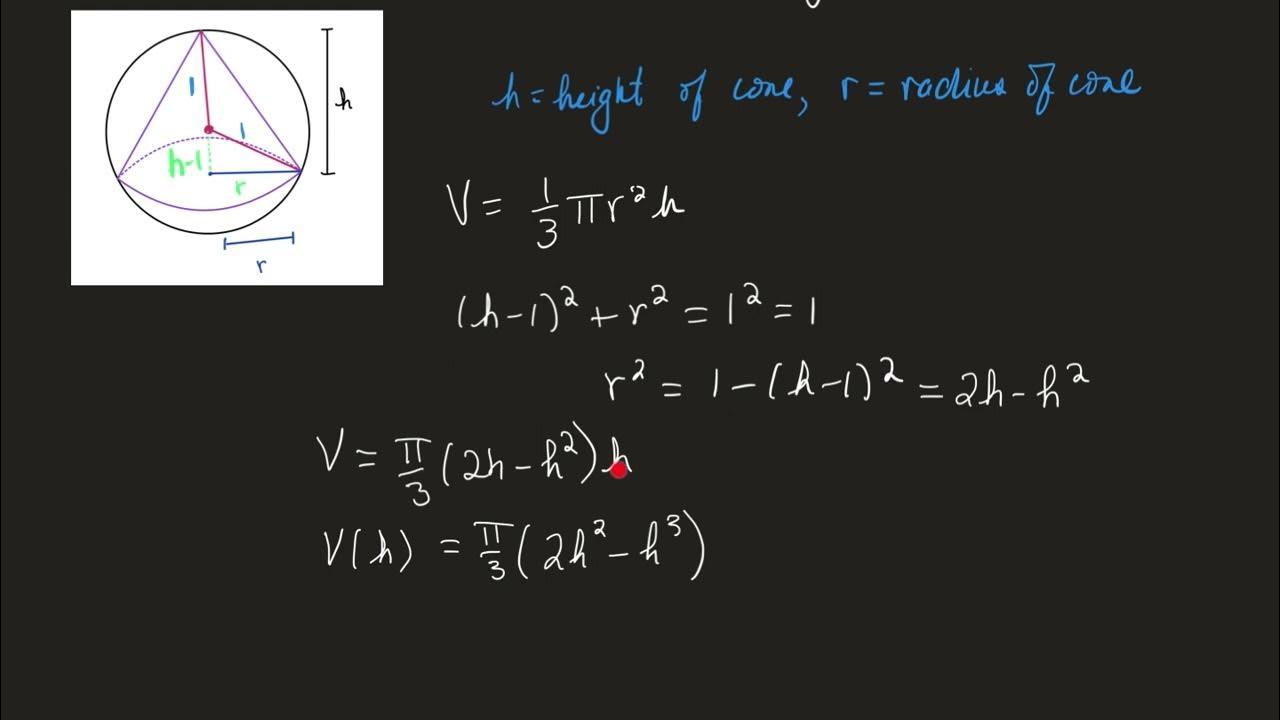 1
h
1
h-1
r
r
h = height of cone, r = radius of cone
V = 1/3 πr²h
(h-1)² + r² = 1² = 1
r² = 1 - (h-1)² = 2h - h²
V = π/3 (2h - h²) h
V(h) = π/3 (2h² - h³)